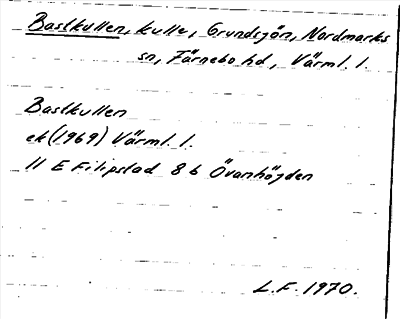 Bastkullen, kulle, Grundsjön, Nordmarks
sn, Färnebo hd, Värml. l.
Bastkullen
ek (1969) Värml. l.
11 E Filipstad 8 b Övanhögden
L.F. 1970.